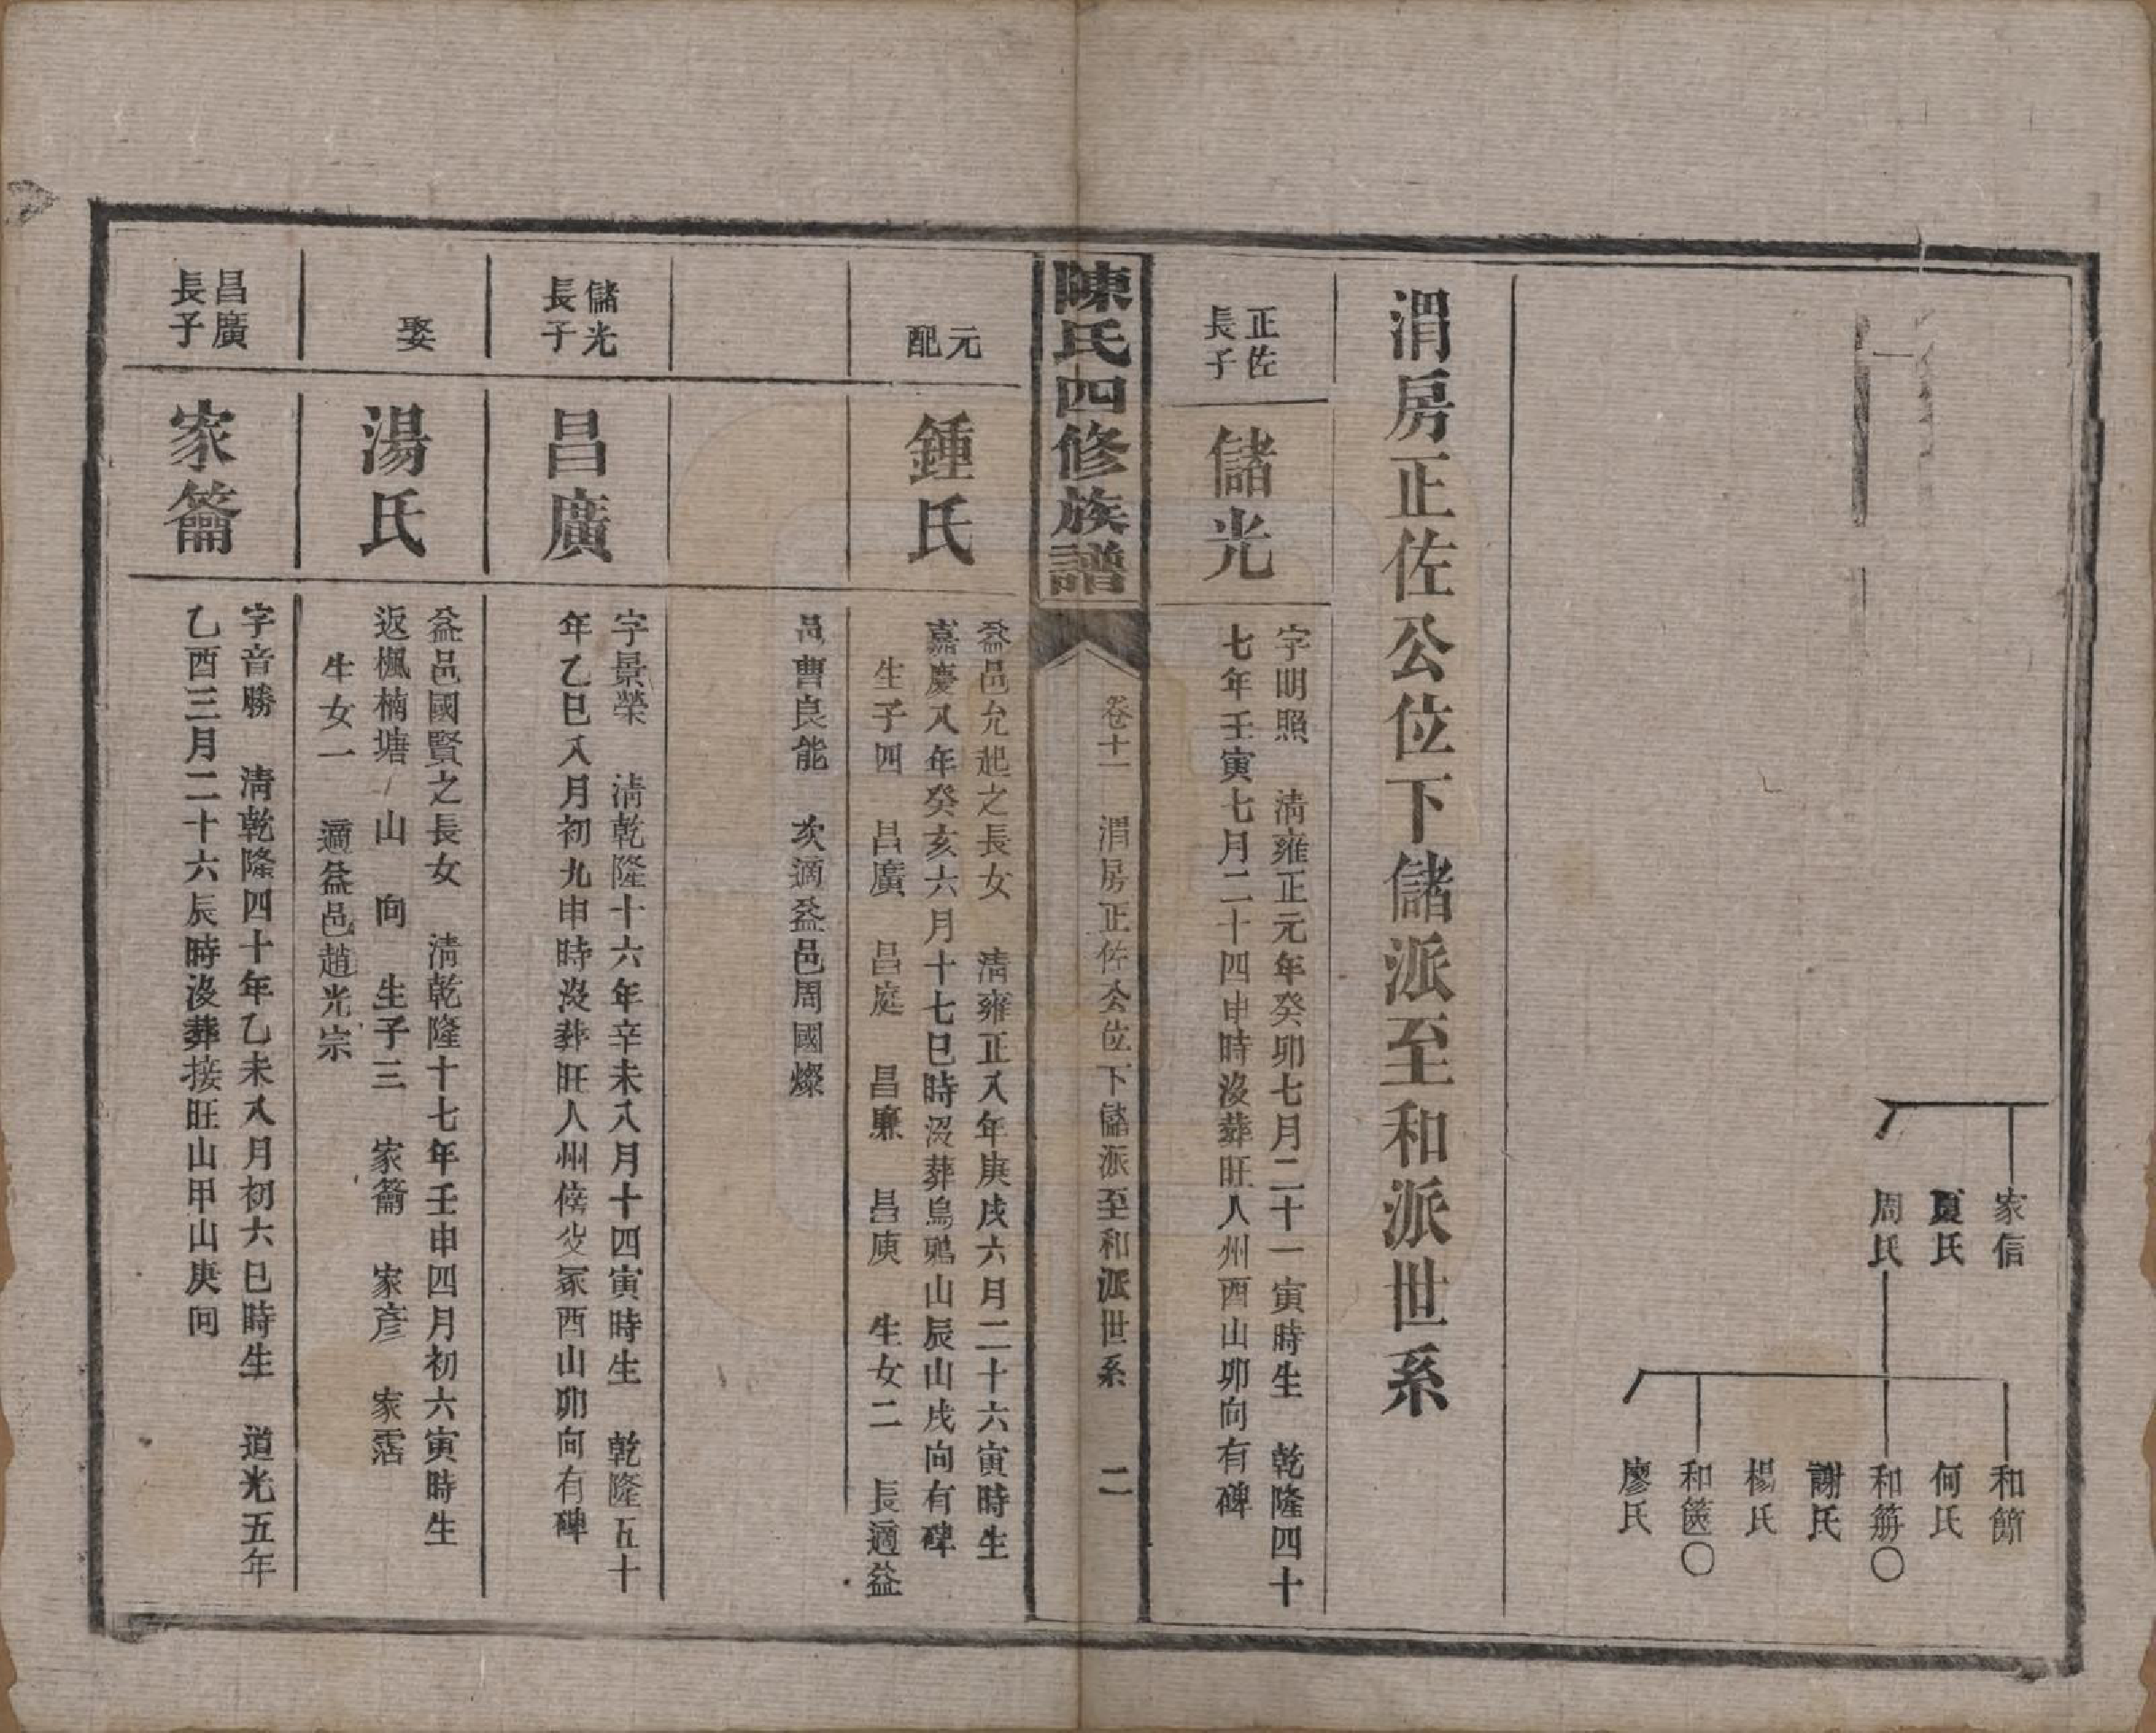 家信
夏氏
周氏
和節
何氏
和箣〇
謝氏
楊氏
和篋〇
廖氏
渭房正佐公位下儲派至和派世系
正佐
長子
儲光
字明照　清雍正元年癸卯七月二十一寅時生　乾隆四十
七年壬寅七月二十四申時沒葬旺人州酉山卯向有碑
陳氏四修族譜
卷十一　渭房正佐公位下儲派至和派世系　二
元
配
鍾氏
益邑允起之長女　清雍正八年庚戌六月二十六寅時生
嘉慶八年癸亥六月十七巳時沒葬烏鴉山辰山戌向有碑
生子四　昌廣　昌庭　昌廉　昌庾　生女二　長適益
邑曹良能　次適益邑周國燦
儲光
長子
昌廣
字景榮　清乾隆十六年辛未八月十四寅時生　乾隆五十
年乙巳八月初九申時沒葬旺人州傍父冢酉山卯向有碑
娶
湯氏
益邑國賢之長女　清乾隆十七年壬申四月初六寅時生
返楓楠塘　山　向　生子三　家籥　家彥　家霑
生女一　適益邑趙光宗
昌廣
長子
家籥
字音勝　清乾隆四十年乙未八月初六巳時生　道光五年
乙酉三月二十六辰時沒葬接旺山甲山庚向